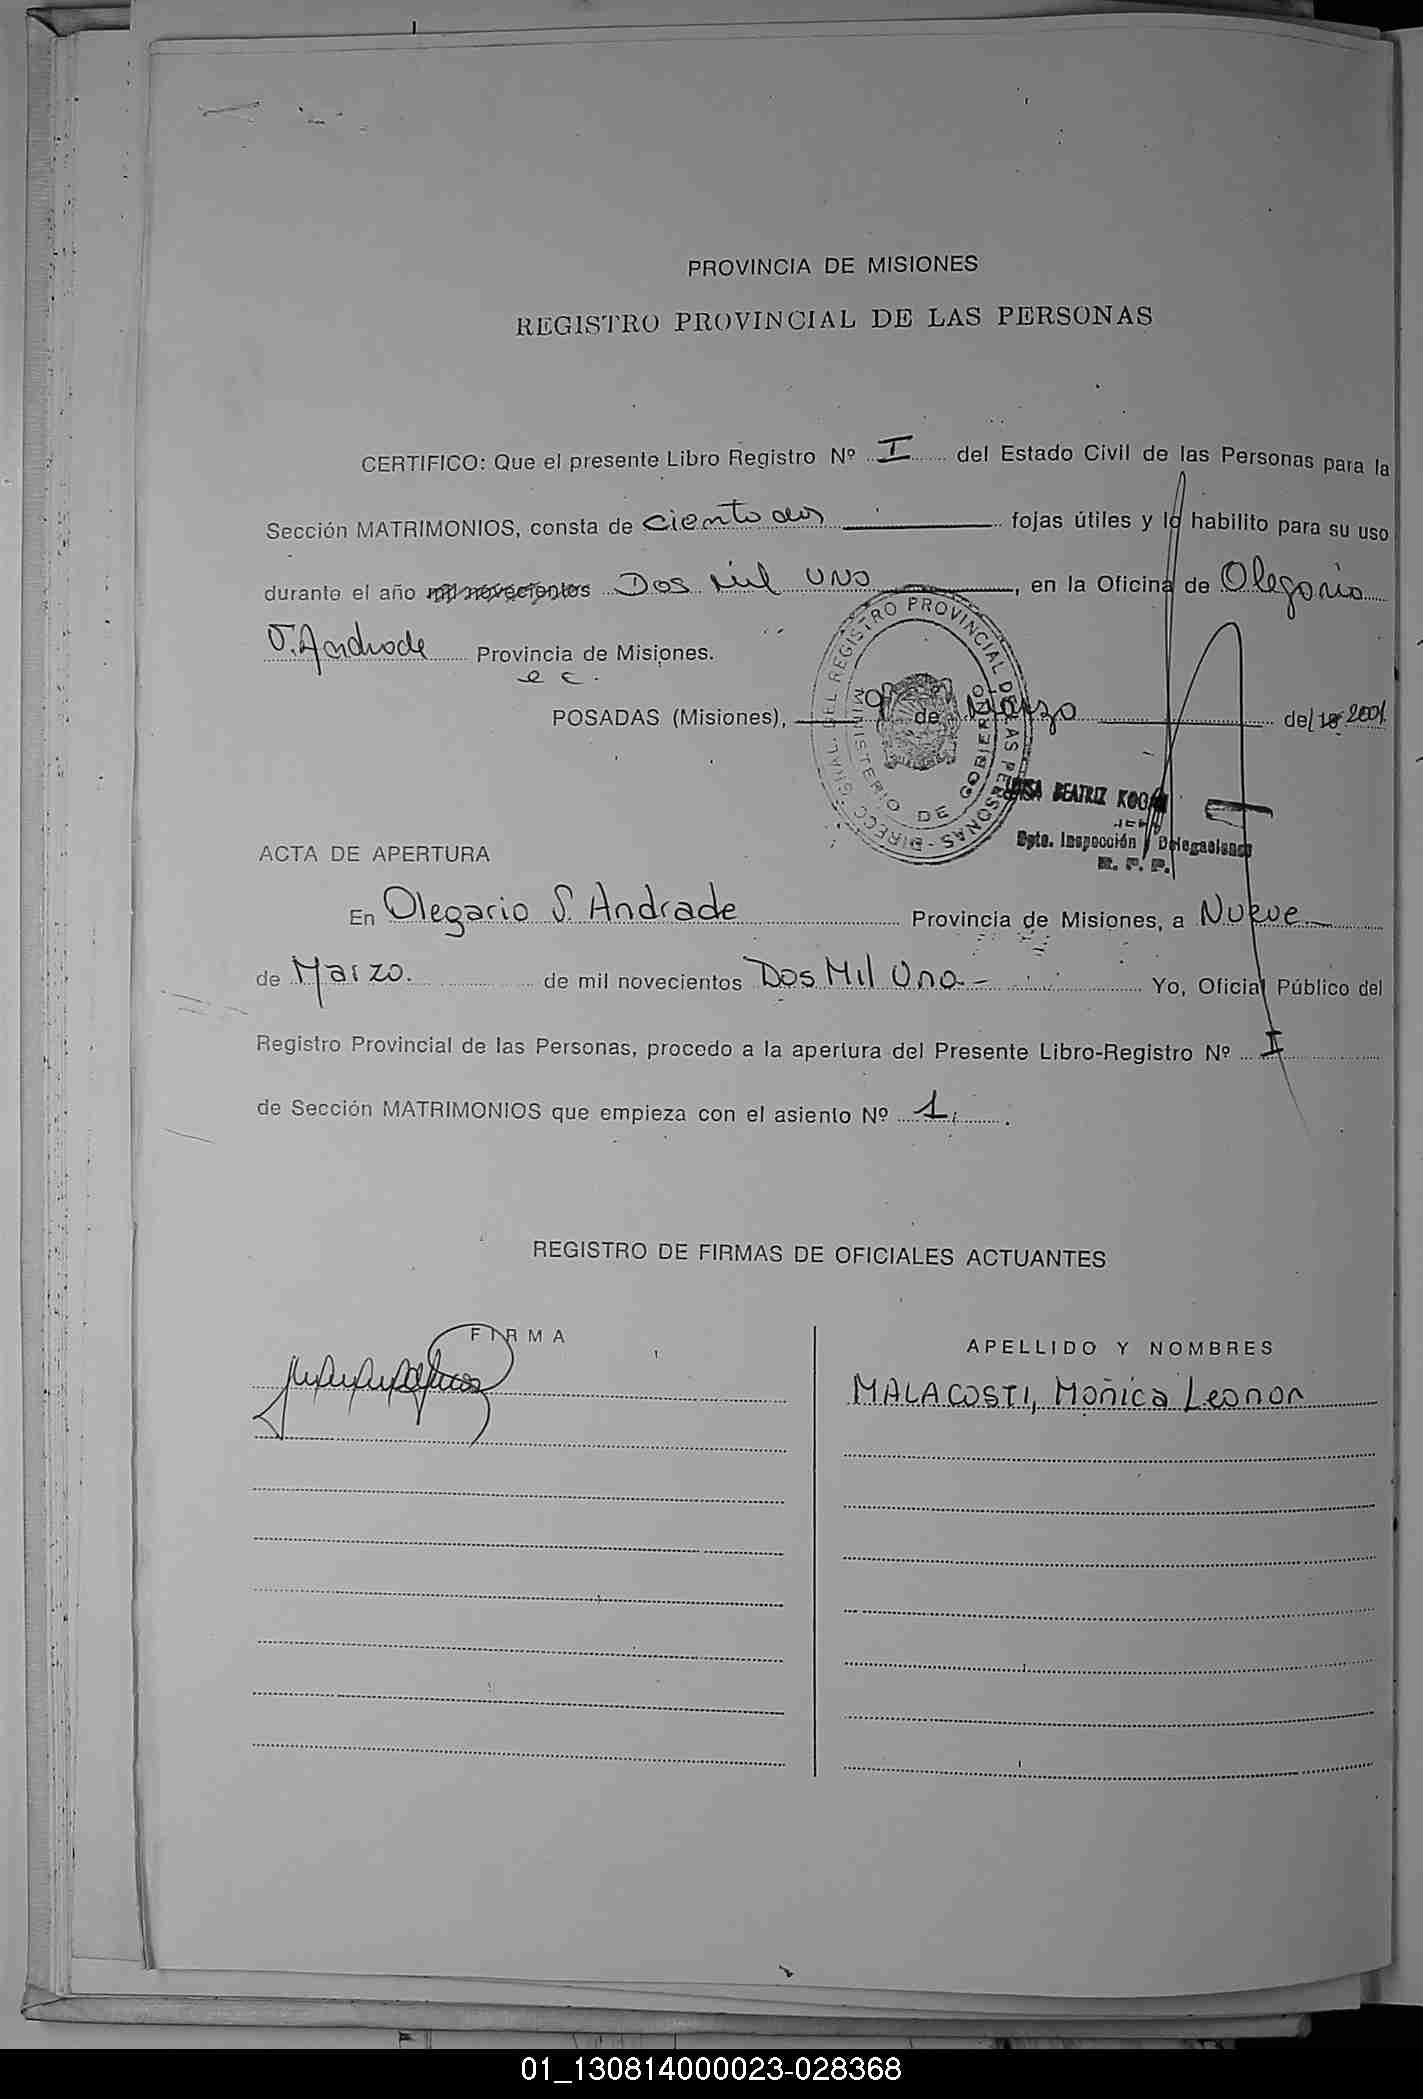 PROVINCIA DE MISIONES
REGISTRO PROVINCIAL DE LAS PERSONAS
CERTIFICO: Que el presente Libro Registro Nº I del Estado Civil de las Personas para la
Sección MATRIMONIOS, consta de ciento dos fojas útiles y lo habilito para su uso
durante el año mil novecientos Dos mil uno, en la Oficina de Olegario
V. Andrade Provincia de Misiones.
e c.
POSADAS (Misiones), 9 de Marzo de 2001.
DIRECC. GRAL. DEL REGISTRO PROVINCIAL DE LAS PERSONAS
MINISTERIO DE GOBIERNO
LUISA BEATRIZ KOGAN
Dpto. Inspección Delegaciones
R. P. P.
ACTA DE APERTURA
En Olegario S. Andrade Provincia de Misiones, a Nueve
de Marzo. de mil novecientos Dos Mil Uno.- Yo, Oficial Público del
Registro Provincial de las Personas, procedo a la apertura del Presente Libro-Registro Nº I
de Sección MATRIMONIOS que empieza con el asiento Nº 1.
REGISTRO DE FIRMAS DE OFICIALES ACTUANTES
FIRMA
APELLIDO Y NOMBRES
MALACOSTI, Monica Leonor
01_130814000023-028368